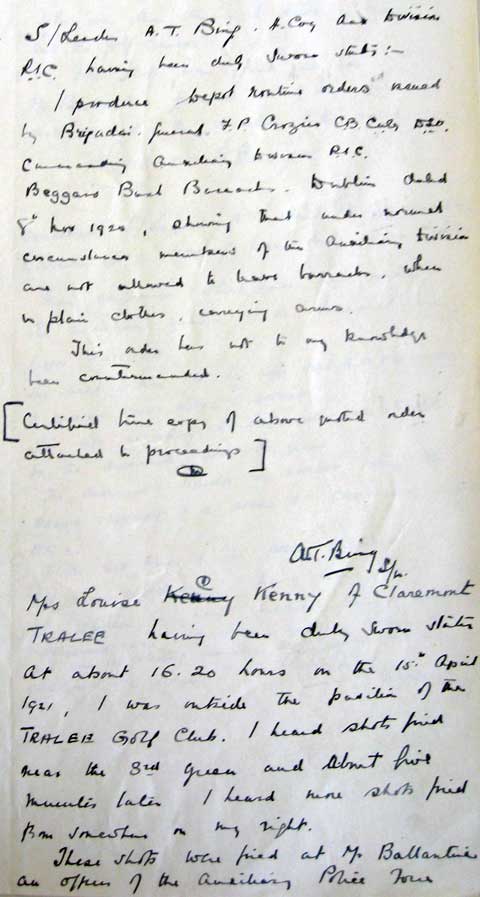 S/Leader A. T. Bing. H. Coy Aux Division
R.I.C. having been duly sworn states:-
I produce Depot routine orders issued
by Brigadier. General. F.P. Crozier C.B. C.M.G. D.S.O.
Commanding Auxiliary Division R.I.C.
Beggars Bush Barracks. Dublin dated
8th Nov 1920, showing that under normal
circumstances members of the Auxiliary Division
are not allowed to leave barracks, when
in plain clothes, carrying arms.
This order has not to my knowledge
been countermanded.
[Certified true copy of above quoted order
attached to proceedings]
A.T. Bing
S/Ldr.
Mrs Louise Kenny of Claremont
TRALEE having been duly sworn states
At about 16.20 hours on the 15th April
1921, I was outside the pavilion of the
TRALEE Golf Club. I heard shots fired
near the 3rd green and about five
minutes later I heard more shots fired
from somewhere on my right.
These shots were fired at Mr Ballantine
an officer of the Auxiliary Police Force